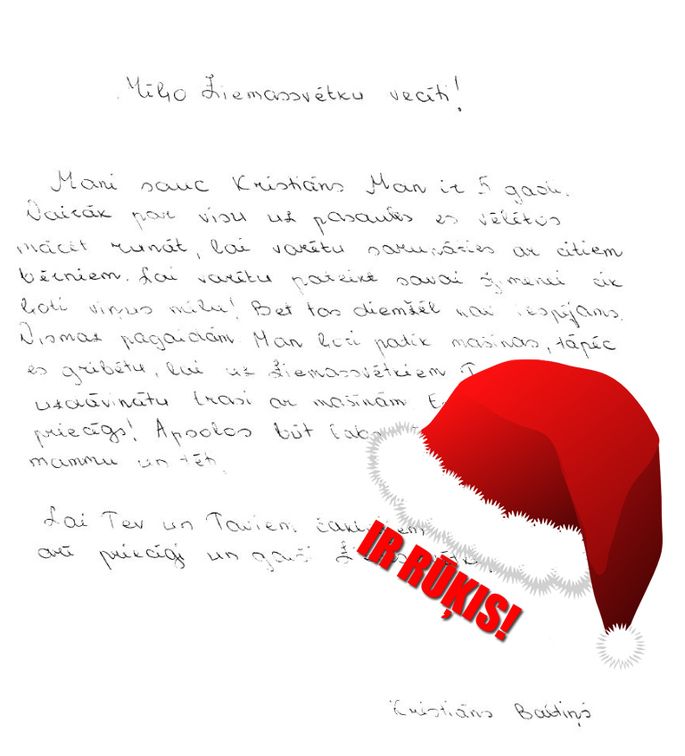 Mīļo Ziemassvētku vecīti!
Mani sauc Kristiāns Man ir 5 gadi.
Vairāk par visu uz pasaules es vēlētos
mācēt runāt, lai varētu sarunāties ar citiem
bērniem. Lai varētu pateikt savai ģimenei cik
ļoti viņus mīlu! Bet tas diemžēl nav iespējams.
Vismaz pagaidām. Man ļoti patīk mašīnas, tāpēc
es gribētu, lai uz Ziemassvētkiem
uzdāvinātu trasi ar mašīnām
priecīgs! Apsolos būt labs
mammu un tēti.
Lai Tev un Taviem
arī priecīgi un gaiši
IR RŪĶIS!
Kristiāns